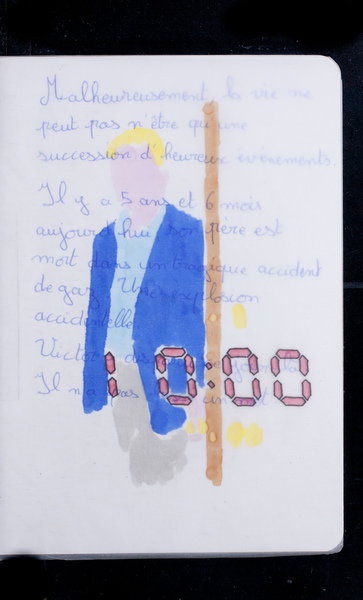 Malheureusement, la vie ne
peut pas n'être qu'une
succession d'heureux événements.
Il y a 5 ans et 6 mois
aujourd'hui son père est
mort dans un tragique accident
de gaz. Une explosion
accidentelle.
Victor
10:00
Il n'a pas un